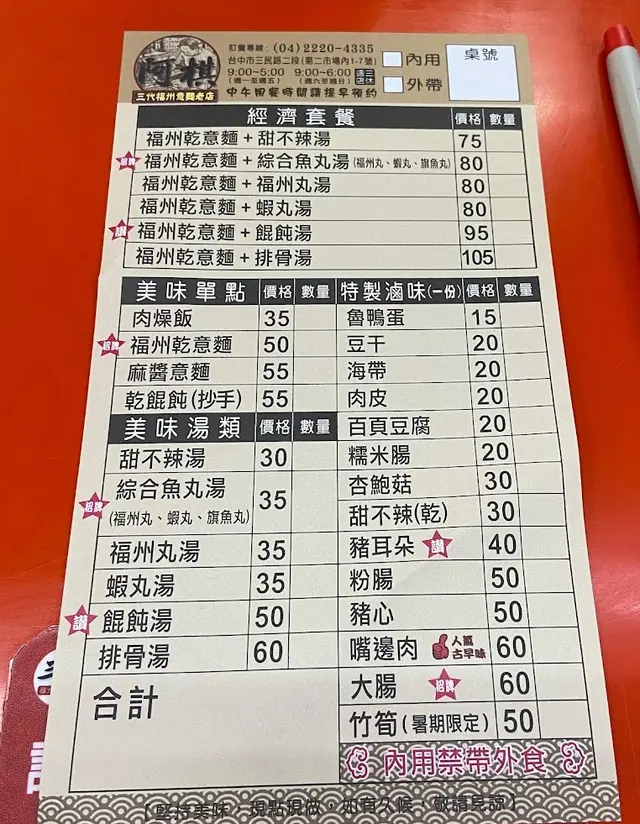 阿棋
三代福州意麵老店
訂餐專線:(04)2220-4335
台中市三民路二段(第二市場內1-7號)
9:00~5:00 9:00~6:00 週三店休
(週一至週五) (週六至週日)
中午用餐時間請提早預約
內用
外帶
桌號
經濟套餐 價格 數量
福州乾意麵+甜不辣湯 75
招牌 福州乾意麵+綜合魚丸湯(福州丸、蝦丸、旗魚丸) 80
福州乾意麵+福州丸湯 80
福州乾意麵+蝦丸湯 80
讚 福州乾意麵+餛飩湯 95
福州乾意麵+排骨湯 105
美味單點 價格 數量
肉燥飯 35
招牌 福州乾意麵 50
麻醬意麵 55
乾餛飩(抄手) 55
美味湯類 價格 數量
甜不辣湯 30
招牌 綜合魚丸湯 35
(福州丸、蝦丸、旗魚丸)
福州丸湯 35
蝦丸湯 35
讚 餛飩湯 50
排骨湯 60
合計
特製滷味(一份) 價格 數量
魯鴨蛋 15
豆干 20
海帶 20
肉皮 20
百頁豆腐 20
糯米腸 20
杏鮑菇 30
甜不辣(乾) 30
豬耳朵 讚 40
粉腸 50
豬心 50
嘴邊肉 人氣古早味 60
大腸 招牌 60
竹筍(暑期限定) 50
內用禁帶外食
【堅持美味,現點現做,如有久候,敬請見諒】